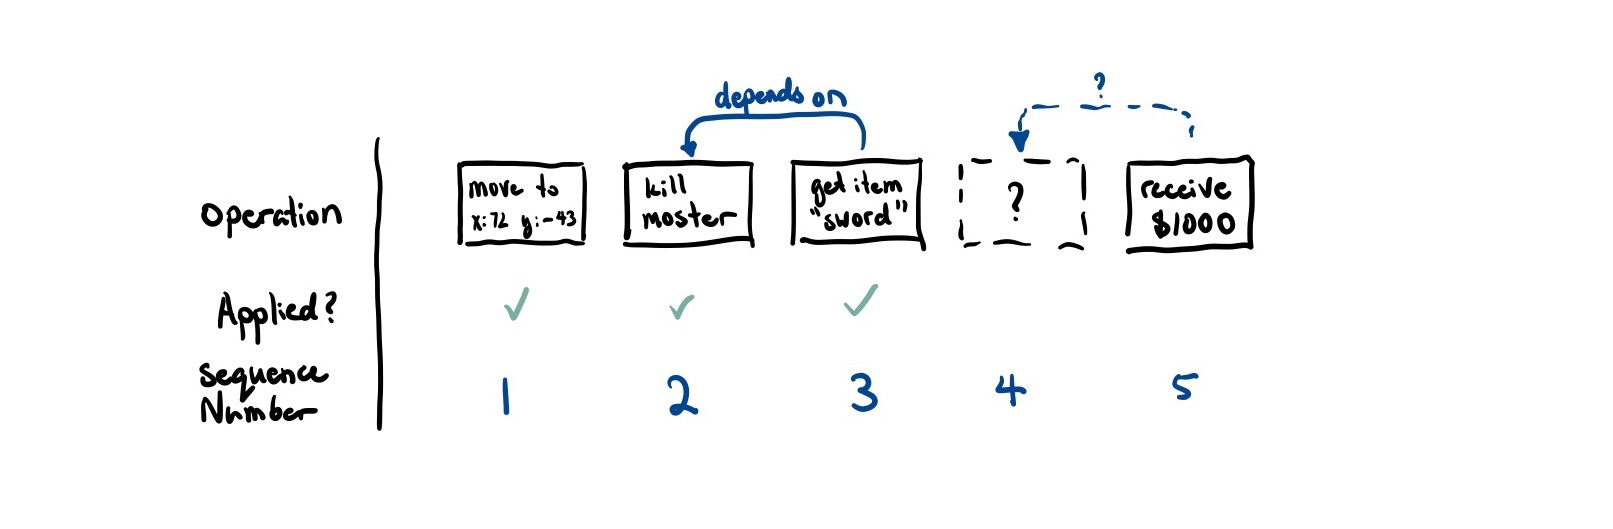 depends on
?
Operation
move to
x:72 y:-43
kill
moster
get item
"sword"
?
receive
$1000
Applied?
✓ ✓ ✓
Sequence
Number
1 2 3 4 5